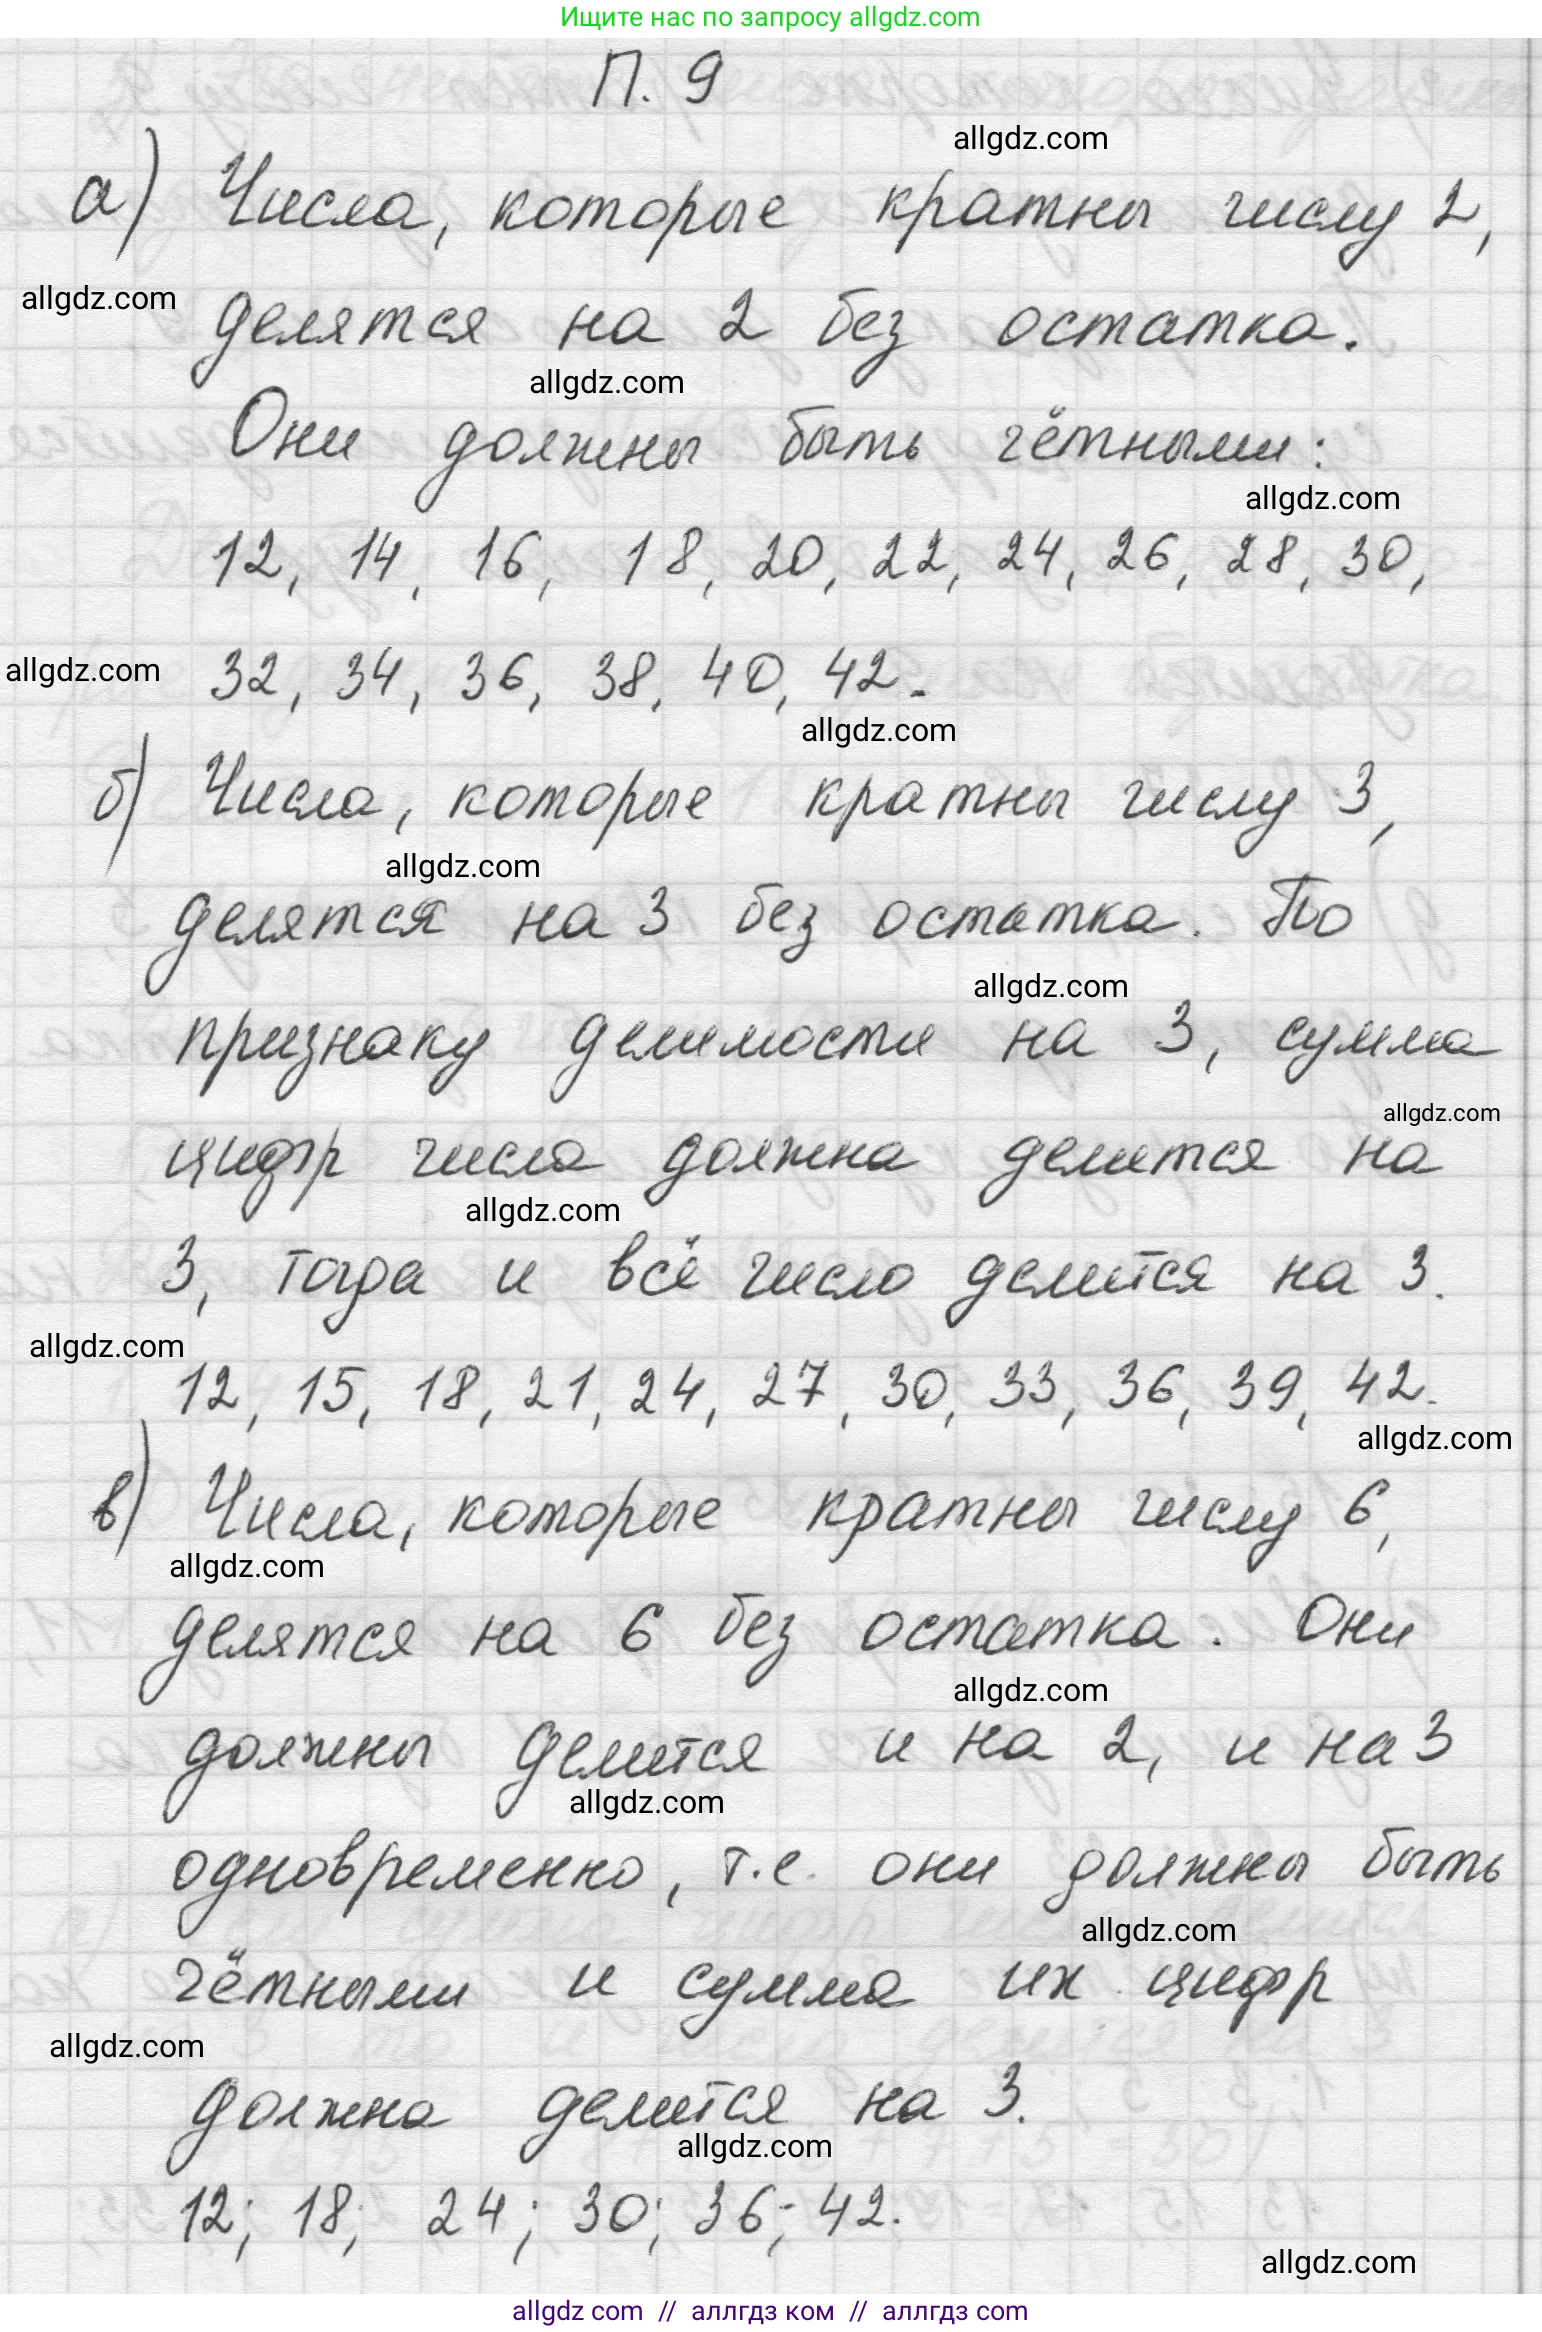 Ищите нас по запросу allgdz.com
П. 9
allgdz.com
а) Числа, которые кратны числу 2,
allgdz.com
делятся на 2 без остатка.
allgdz.com
Они должны быть чётными:
allgdz.com
12, 14, 16, 18, 20, 22, 24, 26, 28, 30,
allgdz.com
32, 34, 36, 38, 40, 42.
allgdz.com
б) Числа, которые кратны числу 3,
allgdz.com
делятся на 3 без остатка. По
allgdz.com
признаку делимости на 3, сумма
allgdz.com
цифр числа должна делится на
allgdz.com
3, тогда и всё число делится на 3.
allgdz.com
12, 15, 18, 21, 24, 27, 30, 33, 36, 39, 42.
allgdz.com
в) Числа, которые кратны числу 6,
allgdz.com
делятся на 6 без остатка. Они
allgdz.com
должны делится и на 2, и на 3
allgdz.com
одновременно, т.е. они должны быть
allgdz.com
чётными и сумма их цифр
allgdz.com
должна делится на 3.
allgdz.com
12; 18; 24; 30; 36; 42.
allgdz.com
allgdz com // аллгдз ком // аллгдз com